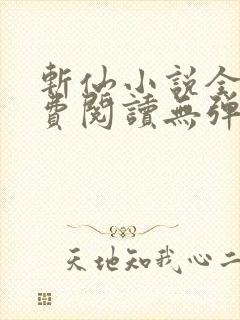 斬仙小説全
費閱讀無彈
天地知我心二